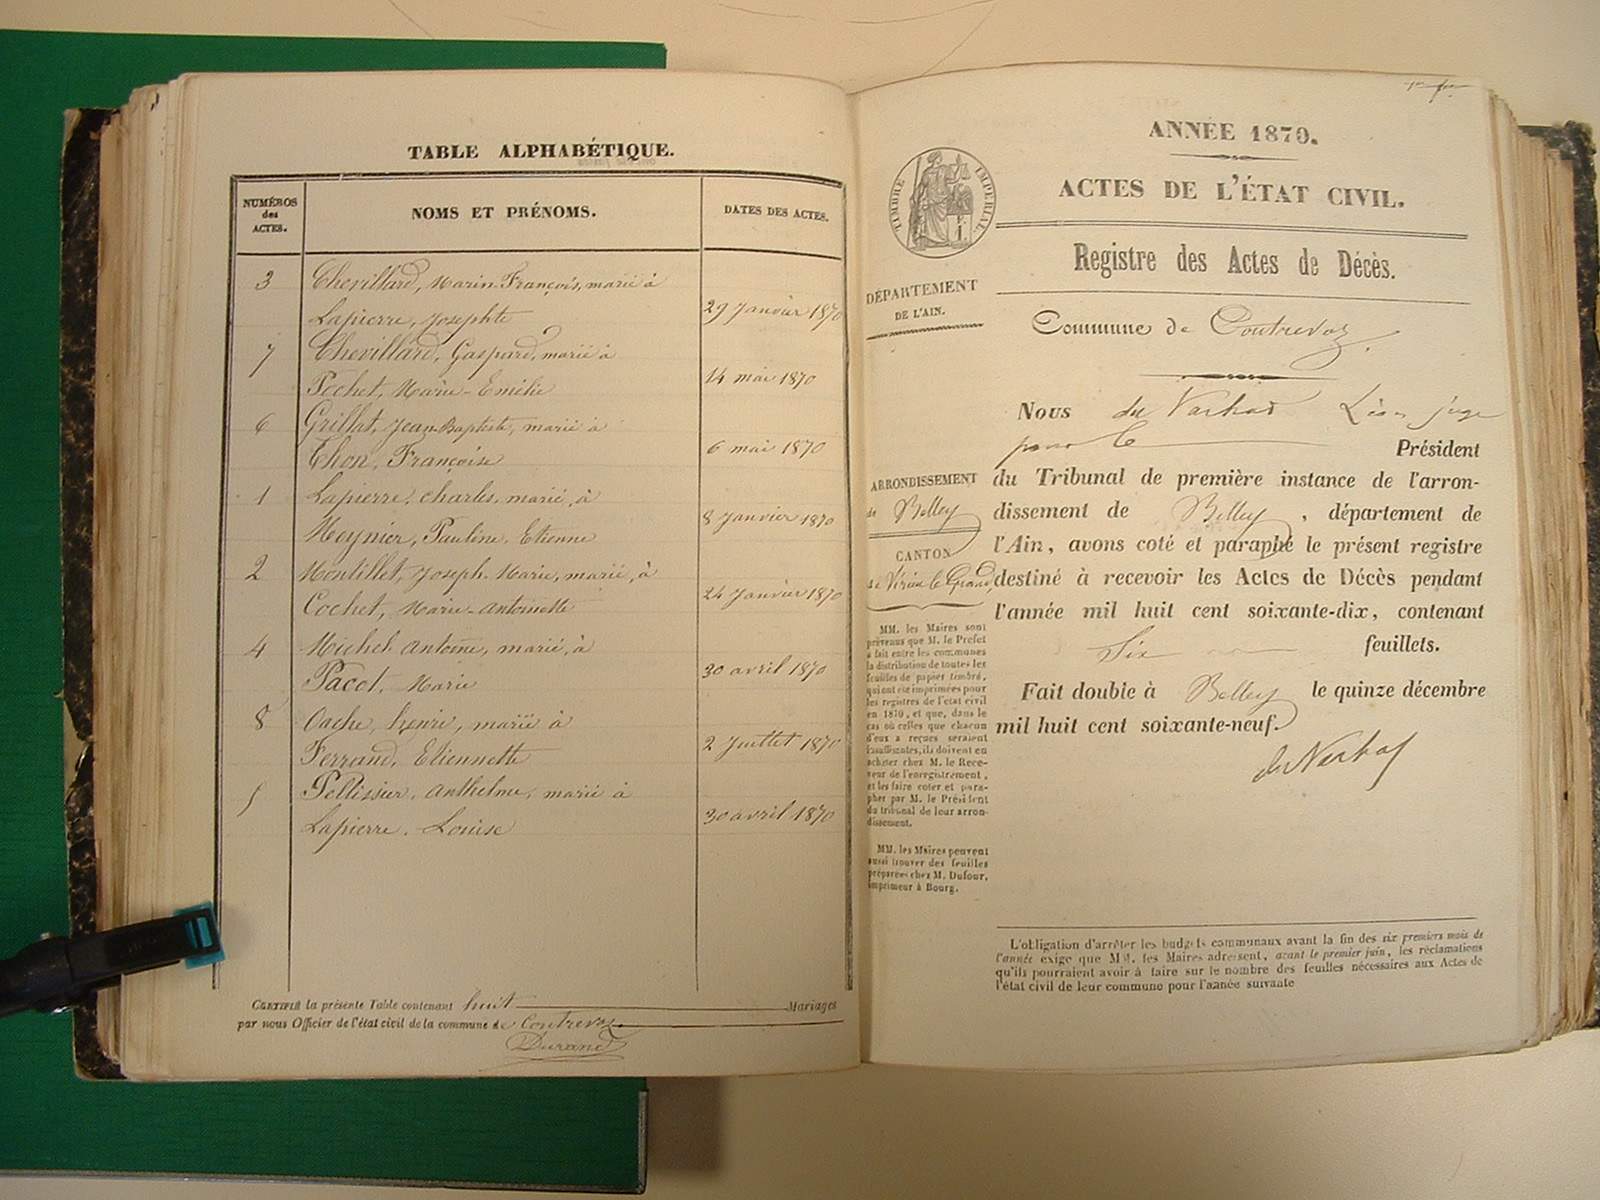 TABLE ALPHABÉTIQUE.
NUMÉROS des ACTES.
NOMS ET PRÉNOMS.
DATES DES ACTES.
3 Chevillard, Marin-François, marié à
Lapierre, Josephte 29 Janvier 1870
7 Chevillard, Gaspard, marié à
Pochet, Marie-Emélie 14 mai 1870
6 Grillat, Jean-Baptiste, marié à
Thon, Françoise 6 mai 1870
1 Lapierre, Charles, marié à
Meynier, Pauline, Etienne 8 Janvier 1870
2 Montillet, Joseph-Marie, marié, à
Cochet, Marie-Antoinette 24 Janvier 1870
4 Michel Antoine, marié, à
Pacot, Marie 30 avril 1870
8 henri, marié à
Ferrand, Etiennette 2 Juillet 1870
5 Pellissier, Anthelme, marié à
Lapierre, Louise 30 avril 1870
CERTIFIÉ la présente Table contenant huit Mariages
par nous Officier de l'état civil de la commune de Contrevoz
Durand
ANNÉE 1870.
ACTES DE L'ÉTAT CIVIL.
TIMBRE IMPÉRIAL
Registre des Actes de Décès.
DÉPARTEMENT
DE L'AIN.
Commune de Contrevoz.
Nous Léon juge
pour le Président
ARRONDISSEMENT
de Belley
CANTON
de Virieu le Grand
du Tribunal de première instance de l'arron-
dissement de Belley, département de
l'Ain, avons coté et paraphé le présent registre
destiné à recevoir les Actes de Décès pendant
l'année mil huit cent soixante-dix, contenant
Six feuillets.
Fait double à Belley le quinze décembre
mil huit cent soixante-neuf.
MM. les Maires sont
prévenus que M. le Préfet
a fait entre les communes
la distribution de toutes les
feuilles de papier timbré,
qui ont été imprimées pour
les registres de l'état civil
en 1870, et que, dans le
cas où celles que chacun
d'eux a reçues seraient
insuffisantes, ils doivent en
acheter chez M. le Rece-
veur de l'enregistrement,
et les faire coter et para-
pher par M. le Président
du tribunal de leur arron-
dissement.
MM. les Maires peuvent
aussi trouver des feuilles
préparées chez M. Dufour,
imprimeur à Bourg.
L'obligation d'arrêter les budgets communaux avant la fin des six premiers mois de
l'année exige que MM. les Maires adressent, avant le premier juin, les réclamations
qu'ils pourraient avoir à faire sur le nombre des feuilles nécessaires aux Actes de
l'état civil de leur commune pour l'année suivante